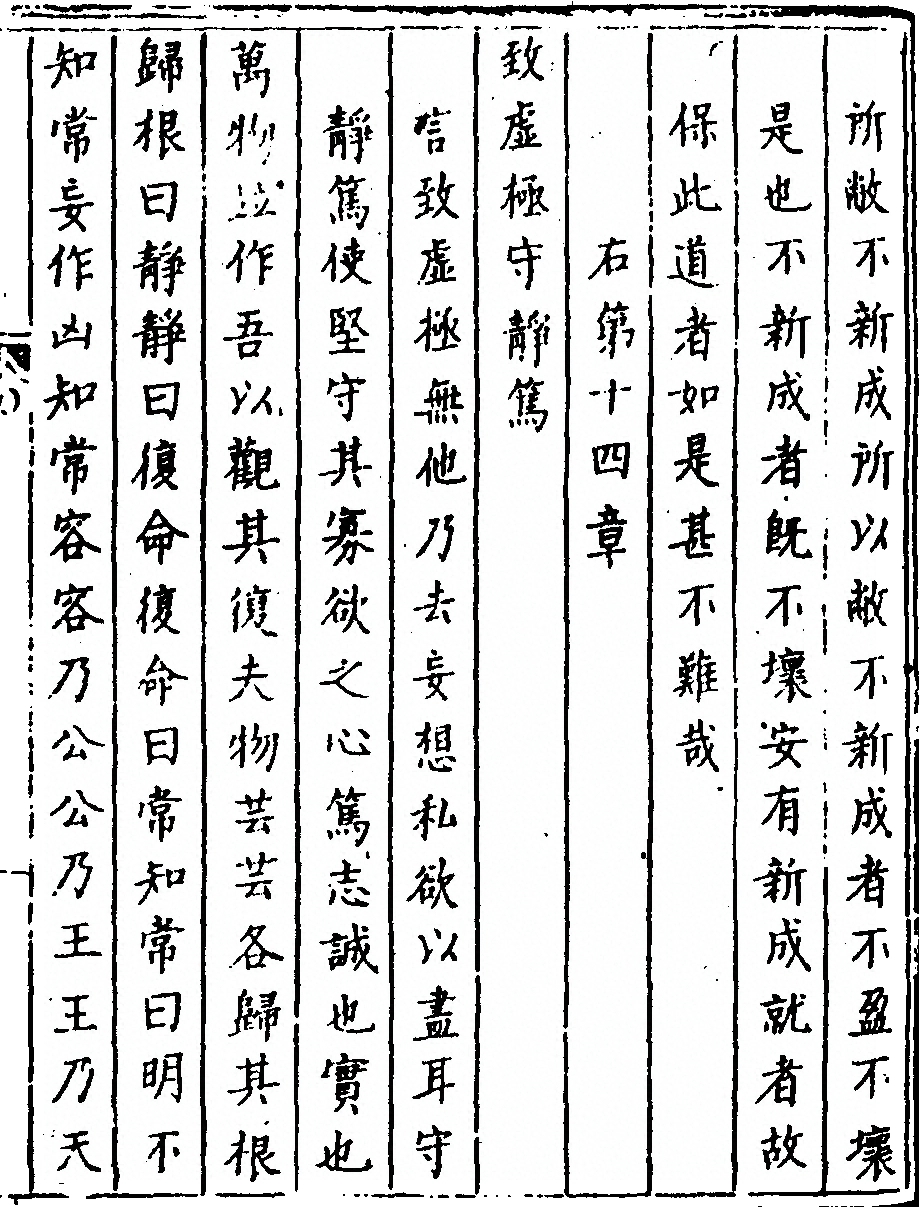 所敝不新成所以敝不新成者不盈不壞
是也不新成者既不壞安有新成就者故
保此道者如是甚不難哉
右第十四章
致虛極守靜篤
言致虛極無他乃去妄想私欲以盡耳守
靜篤使堅守其寡欲之心篤志誠也實也
萬物並作吾以觀其復夫物芸芸各歸其根
歸根曰靜靜曰復命復命曰常知常曰明不
知常妄作凶知常容容乃公公乃王王乃天